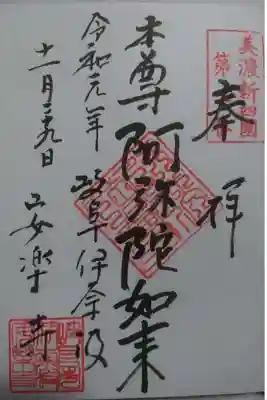 美濃新四國
第
奉拝
本尊阿弥陀如来
令和元年 岐阜伊奈波
十一月九日 安楽寺